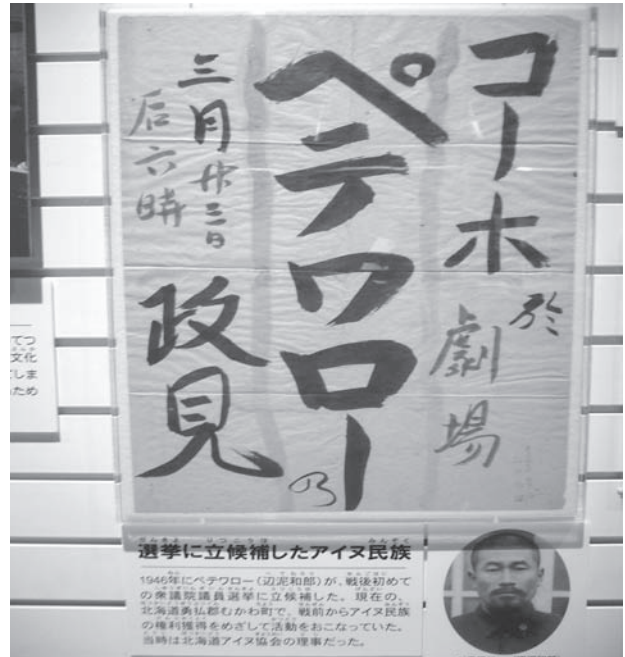 コーホ
於
劇場
ペテワローの
三月廿三日
后六時
政見
てつ
文化
てしま
ため
選挙に立候補したアイヌ民族
1946年にペテワロー(辺泥和郎)が、戦後初めて
の衆議院議員選挙に立候補した。現在の、
北海道勇払郡むかわ町で、戦前からアイヌ民族
の権利獲得をめざして活動をおこなっていた。
当時は北海道アイヌ協会の理事だった。